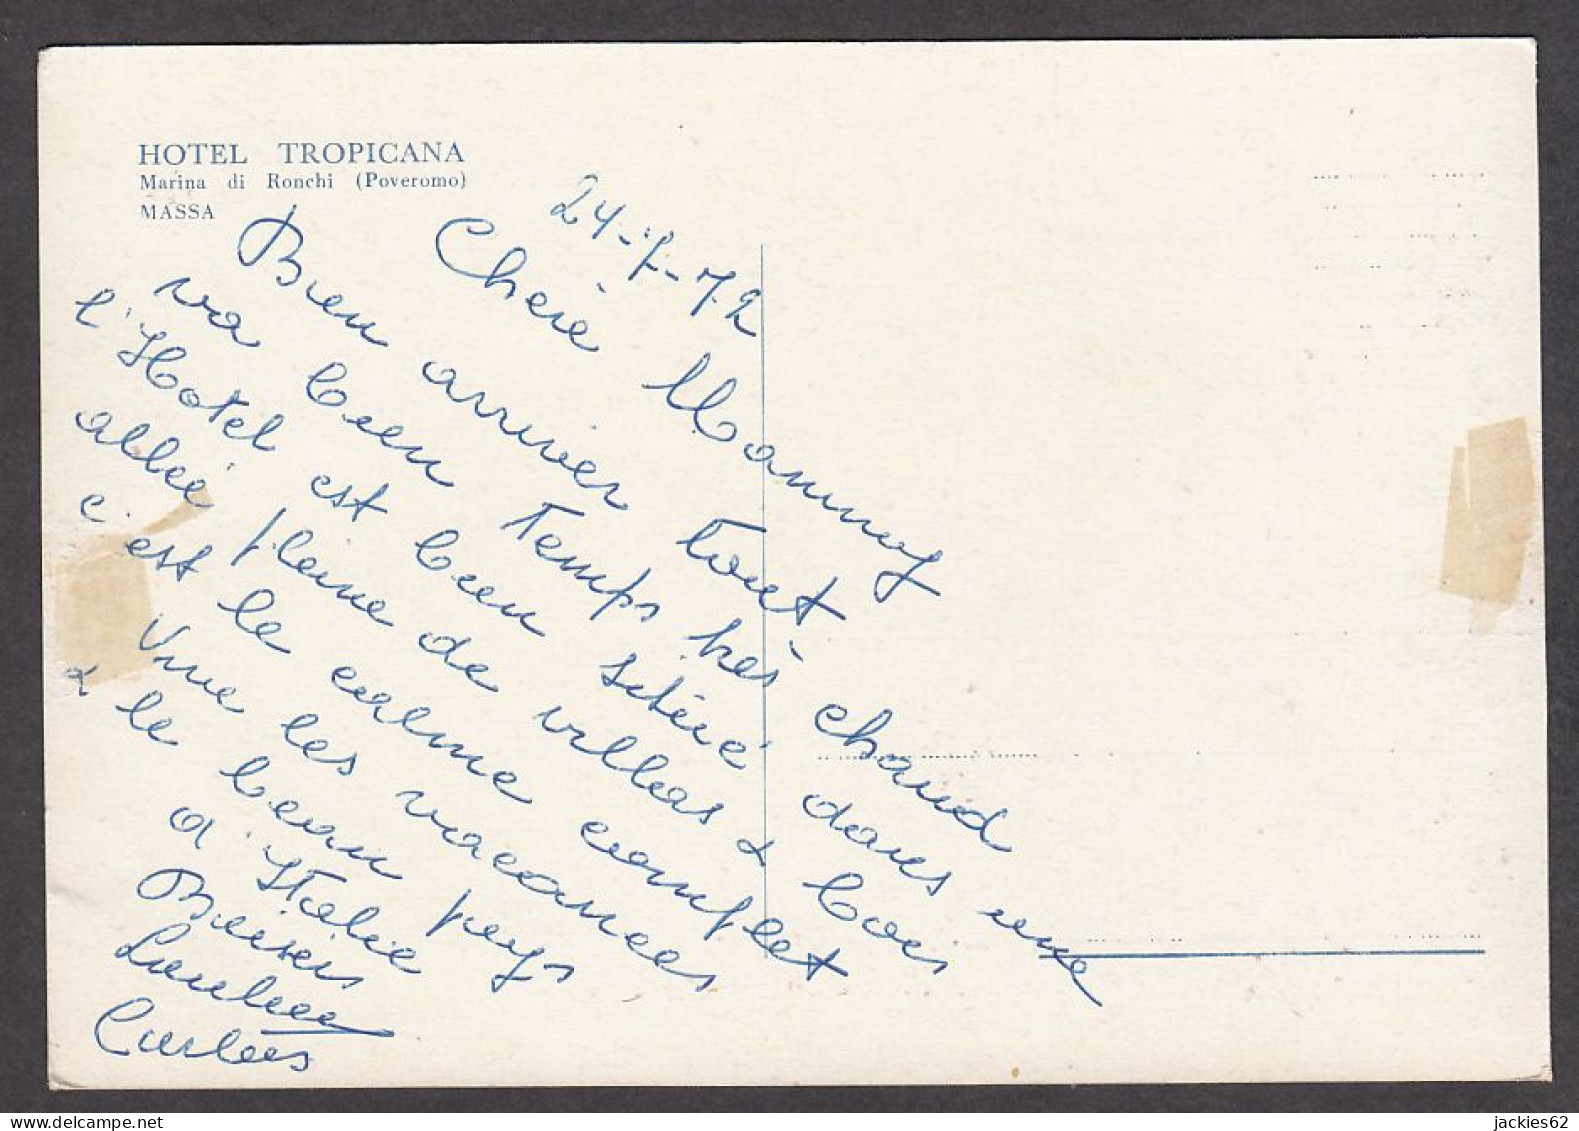 HOTEL TROPICANA
Marina di Ronchi (Poveromo)
MASSA
24-7-72
Chère Mammy
Bien arriver Tout
va bien Temps très chaud
l'Hotel est bien situé dans une
allée pleine de villas & bois
c'est le calme complet
Vive les vacances
& le beau pays
d'Italie
Baisers
Carlos
jackies62